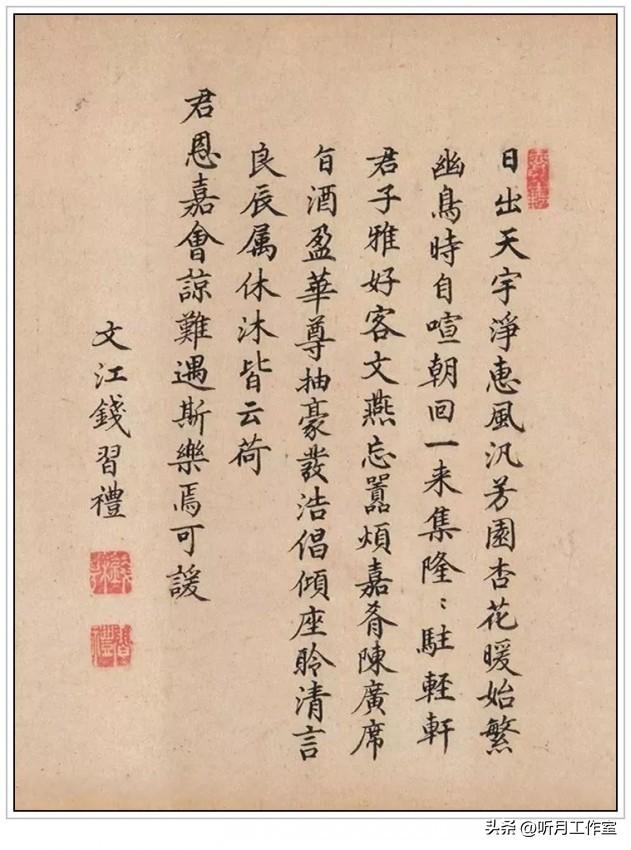 日出天宇淨惠風汎芳園杏花暖始繁
幽鳥時自喧朝回一来集隆：駐軽軒
君子雅好客文燕忘囂煩嘉肴陳廣席
旨酒盈華尊抽豪發浩倡傾座聆清言
良辰属休沐皆云荷
君恩嘉會諒難遇斯樂焉可諼
文江錢習禮
習禮
头条 @听月工作室